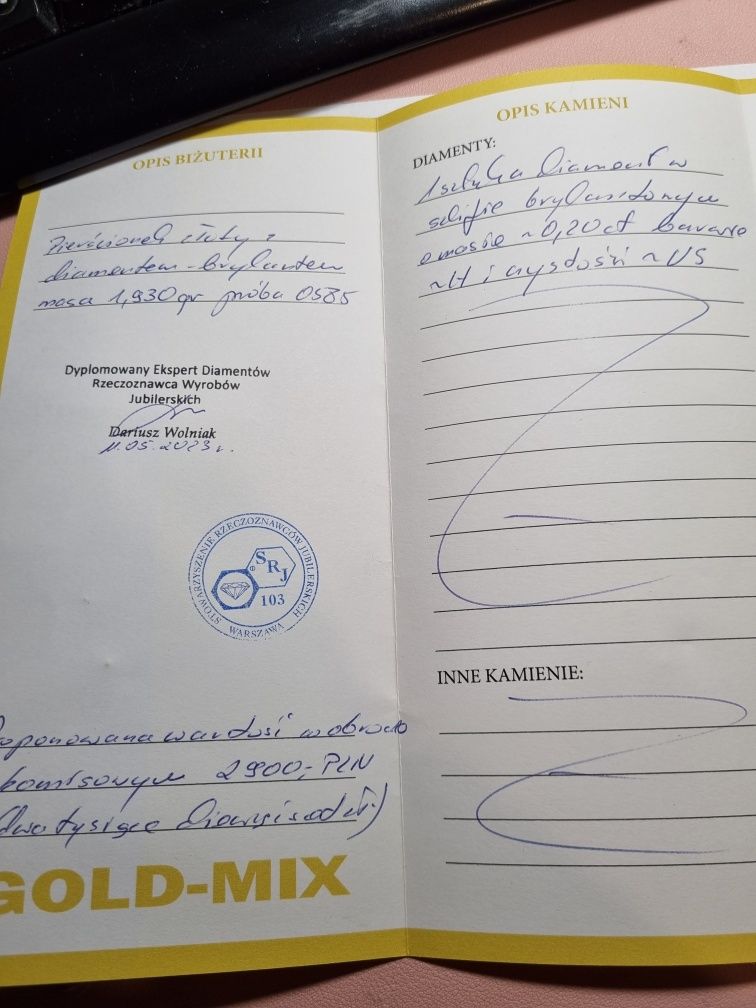 OPIS BIŻUTERII
Pierścionek złoty z
diamentem-brylantem
masa 1,930gr próba 0585
Dyplomowany Ekspert Diamentów
Rzeczoznawca Wyrobów
Jubilerskich
Dariusz Wolniak
11.05.2023r.
STOWARZYSZENIE RZECZOZNAWCÓW JUBILERSKICH
SRJ
®
103
WARSZAWA
oponowana wartość w obrocie
komisowym 2900,-PLN
(dwa tysiące dziewięćset zł)
GOLD-MIX
OPIS KAMIENI
DIAMENTY:
1 sztuka Diament w
szlifie brylantowym
o masie ~0,20ct barwie
~H i czystości ~VS
INNE KAMIENIE: